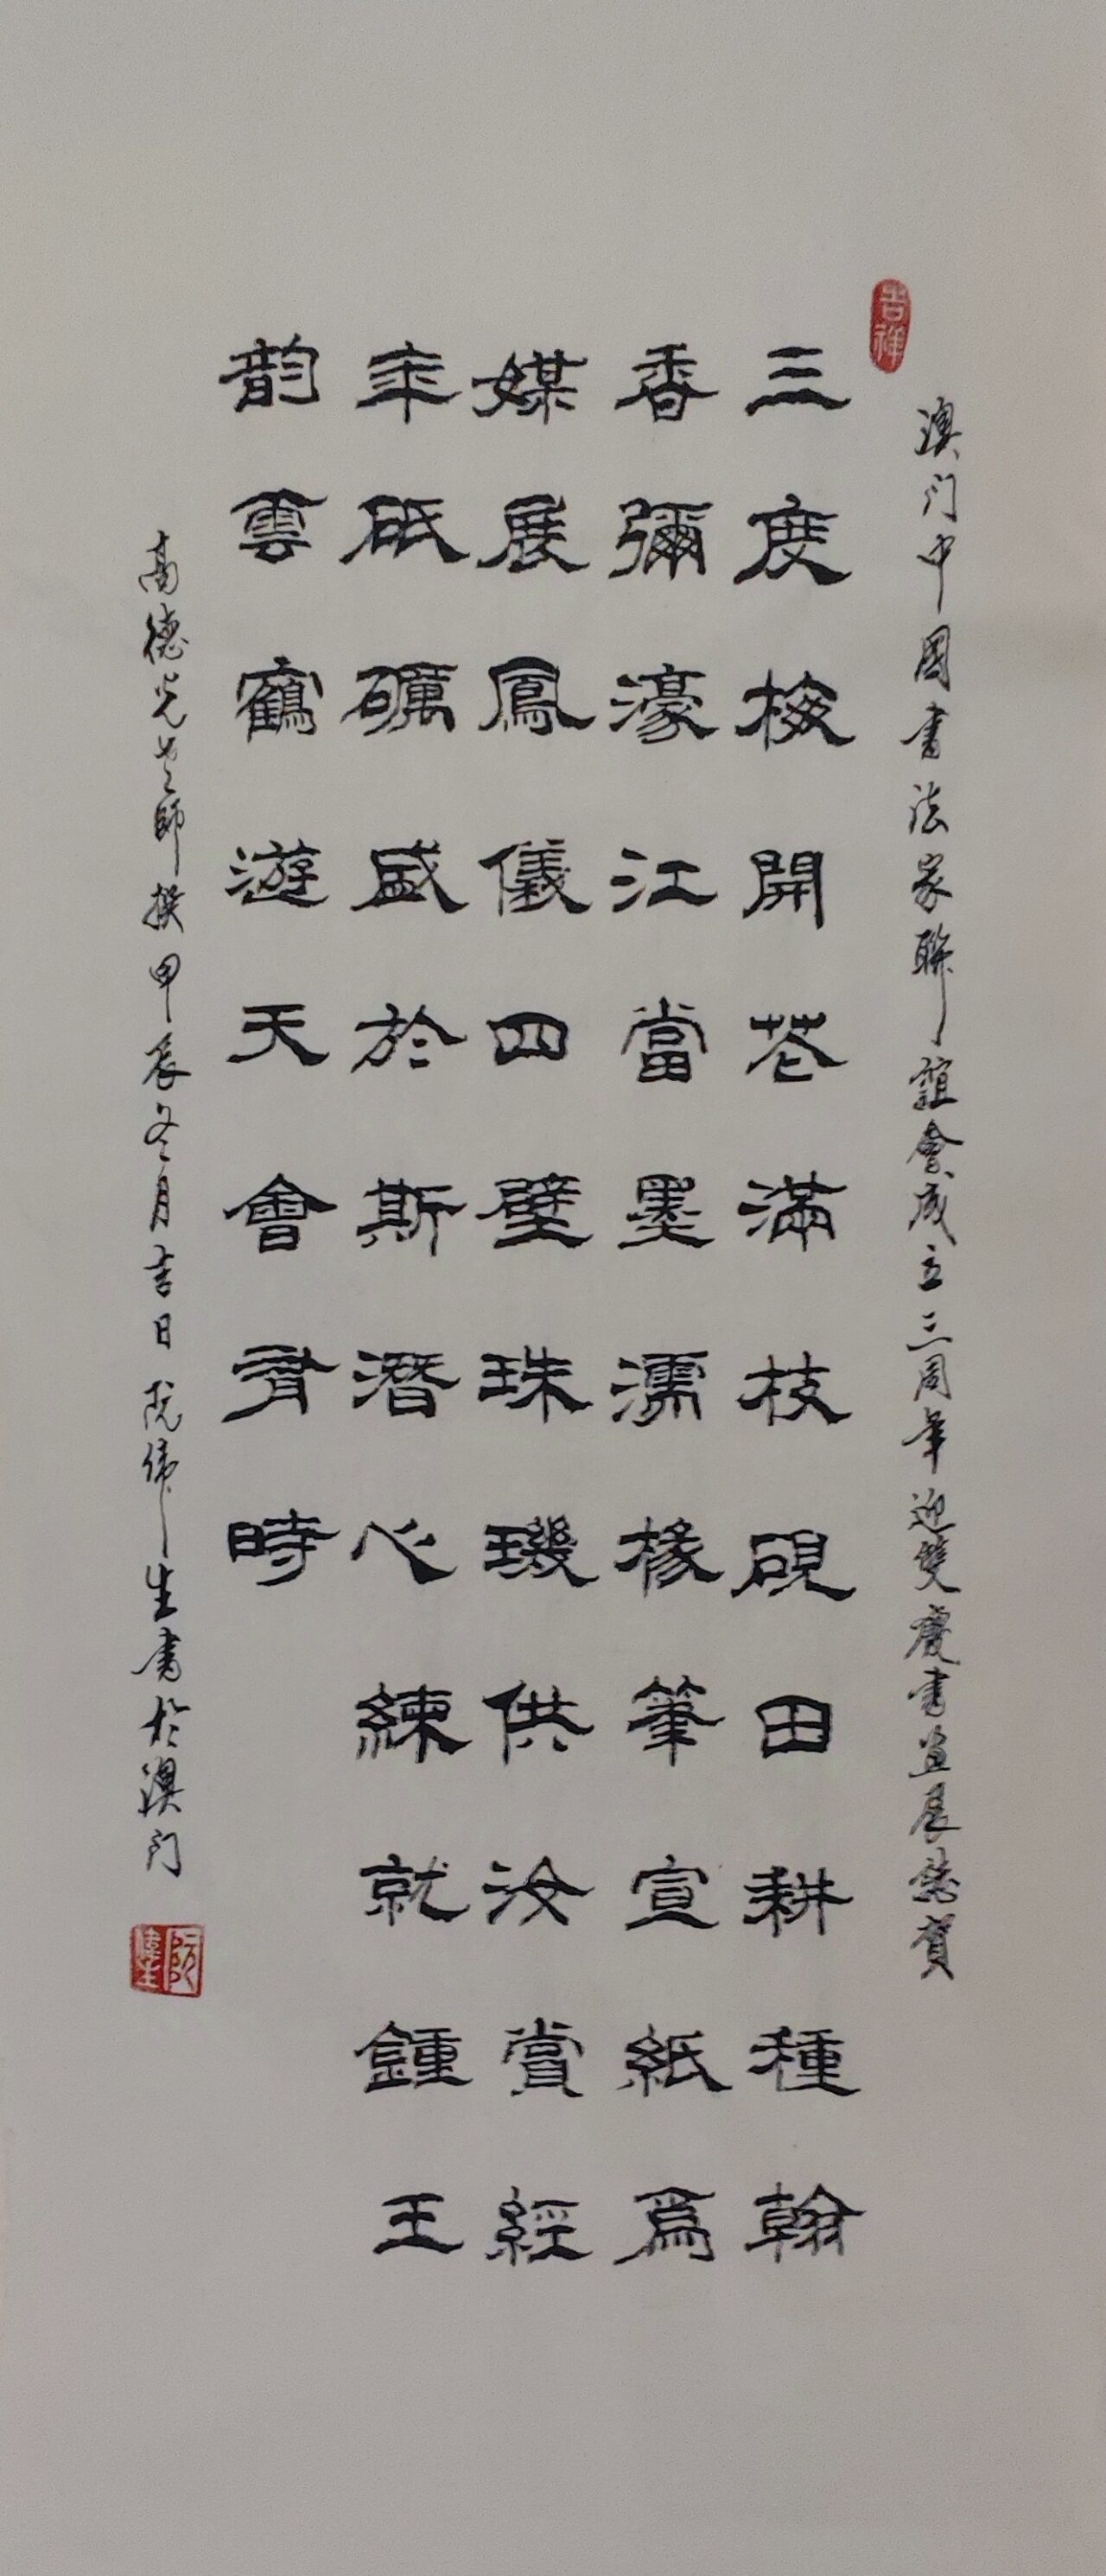 吉祥
澳门中國書法家聯誼會成立三周年迎雙慶書畫展誌賀
三度梅開花滿枝硯田耕種翰
香彌濠江當墨濡椽筆宣紙爲
媒展鳳儀四壁珠璣供汝賞經
年砥礪盛於斯潛心練就鍾王
韵雲鶴遊天會有時
高德光老師撰甲辰冬月吉日阮偉生書於澳门
阮偉生